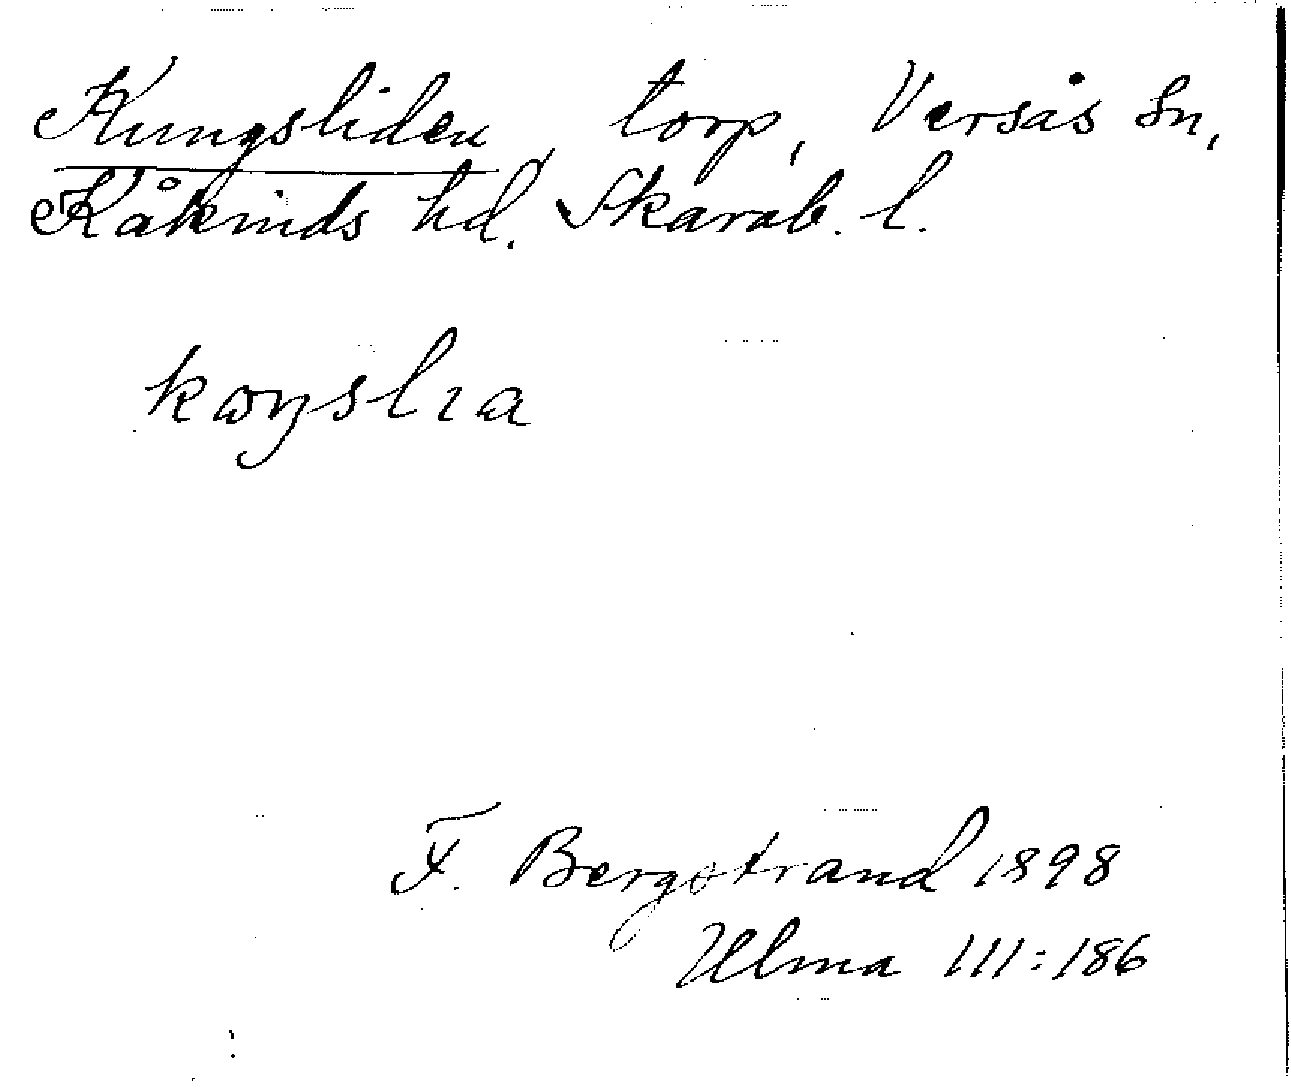 Kungsliden, torp, Versås sn,
Kåkinds hd. Skarab. l.
kɷŋslıa
F. Bergstrand 1898
Ulma 111:186